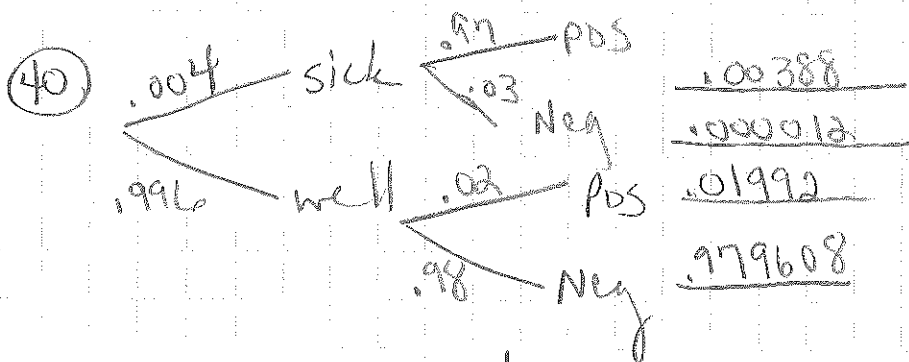 40 .004 sick .97 pos .00388
.03 Neg .000012
.996 well .02 pos .01992
.98 Neg .979608